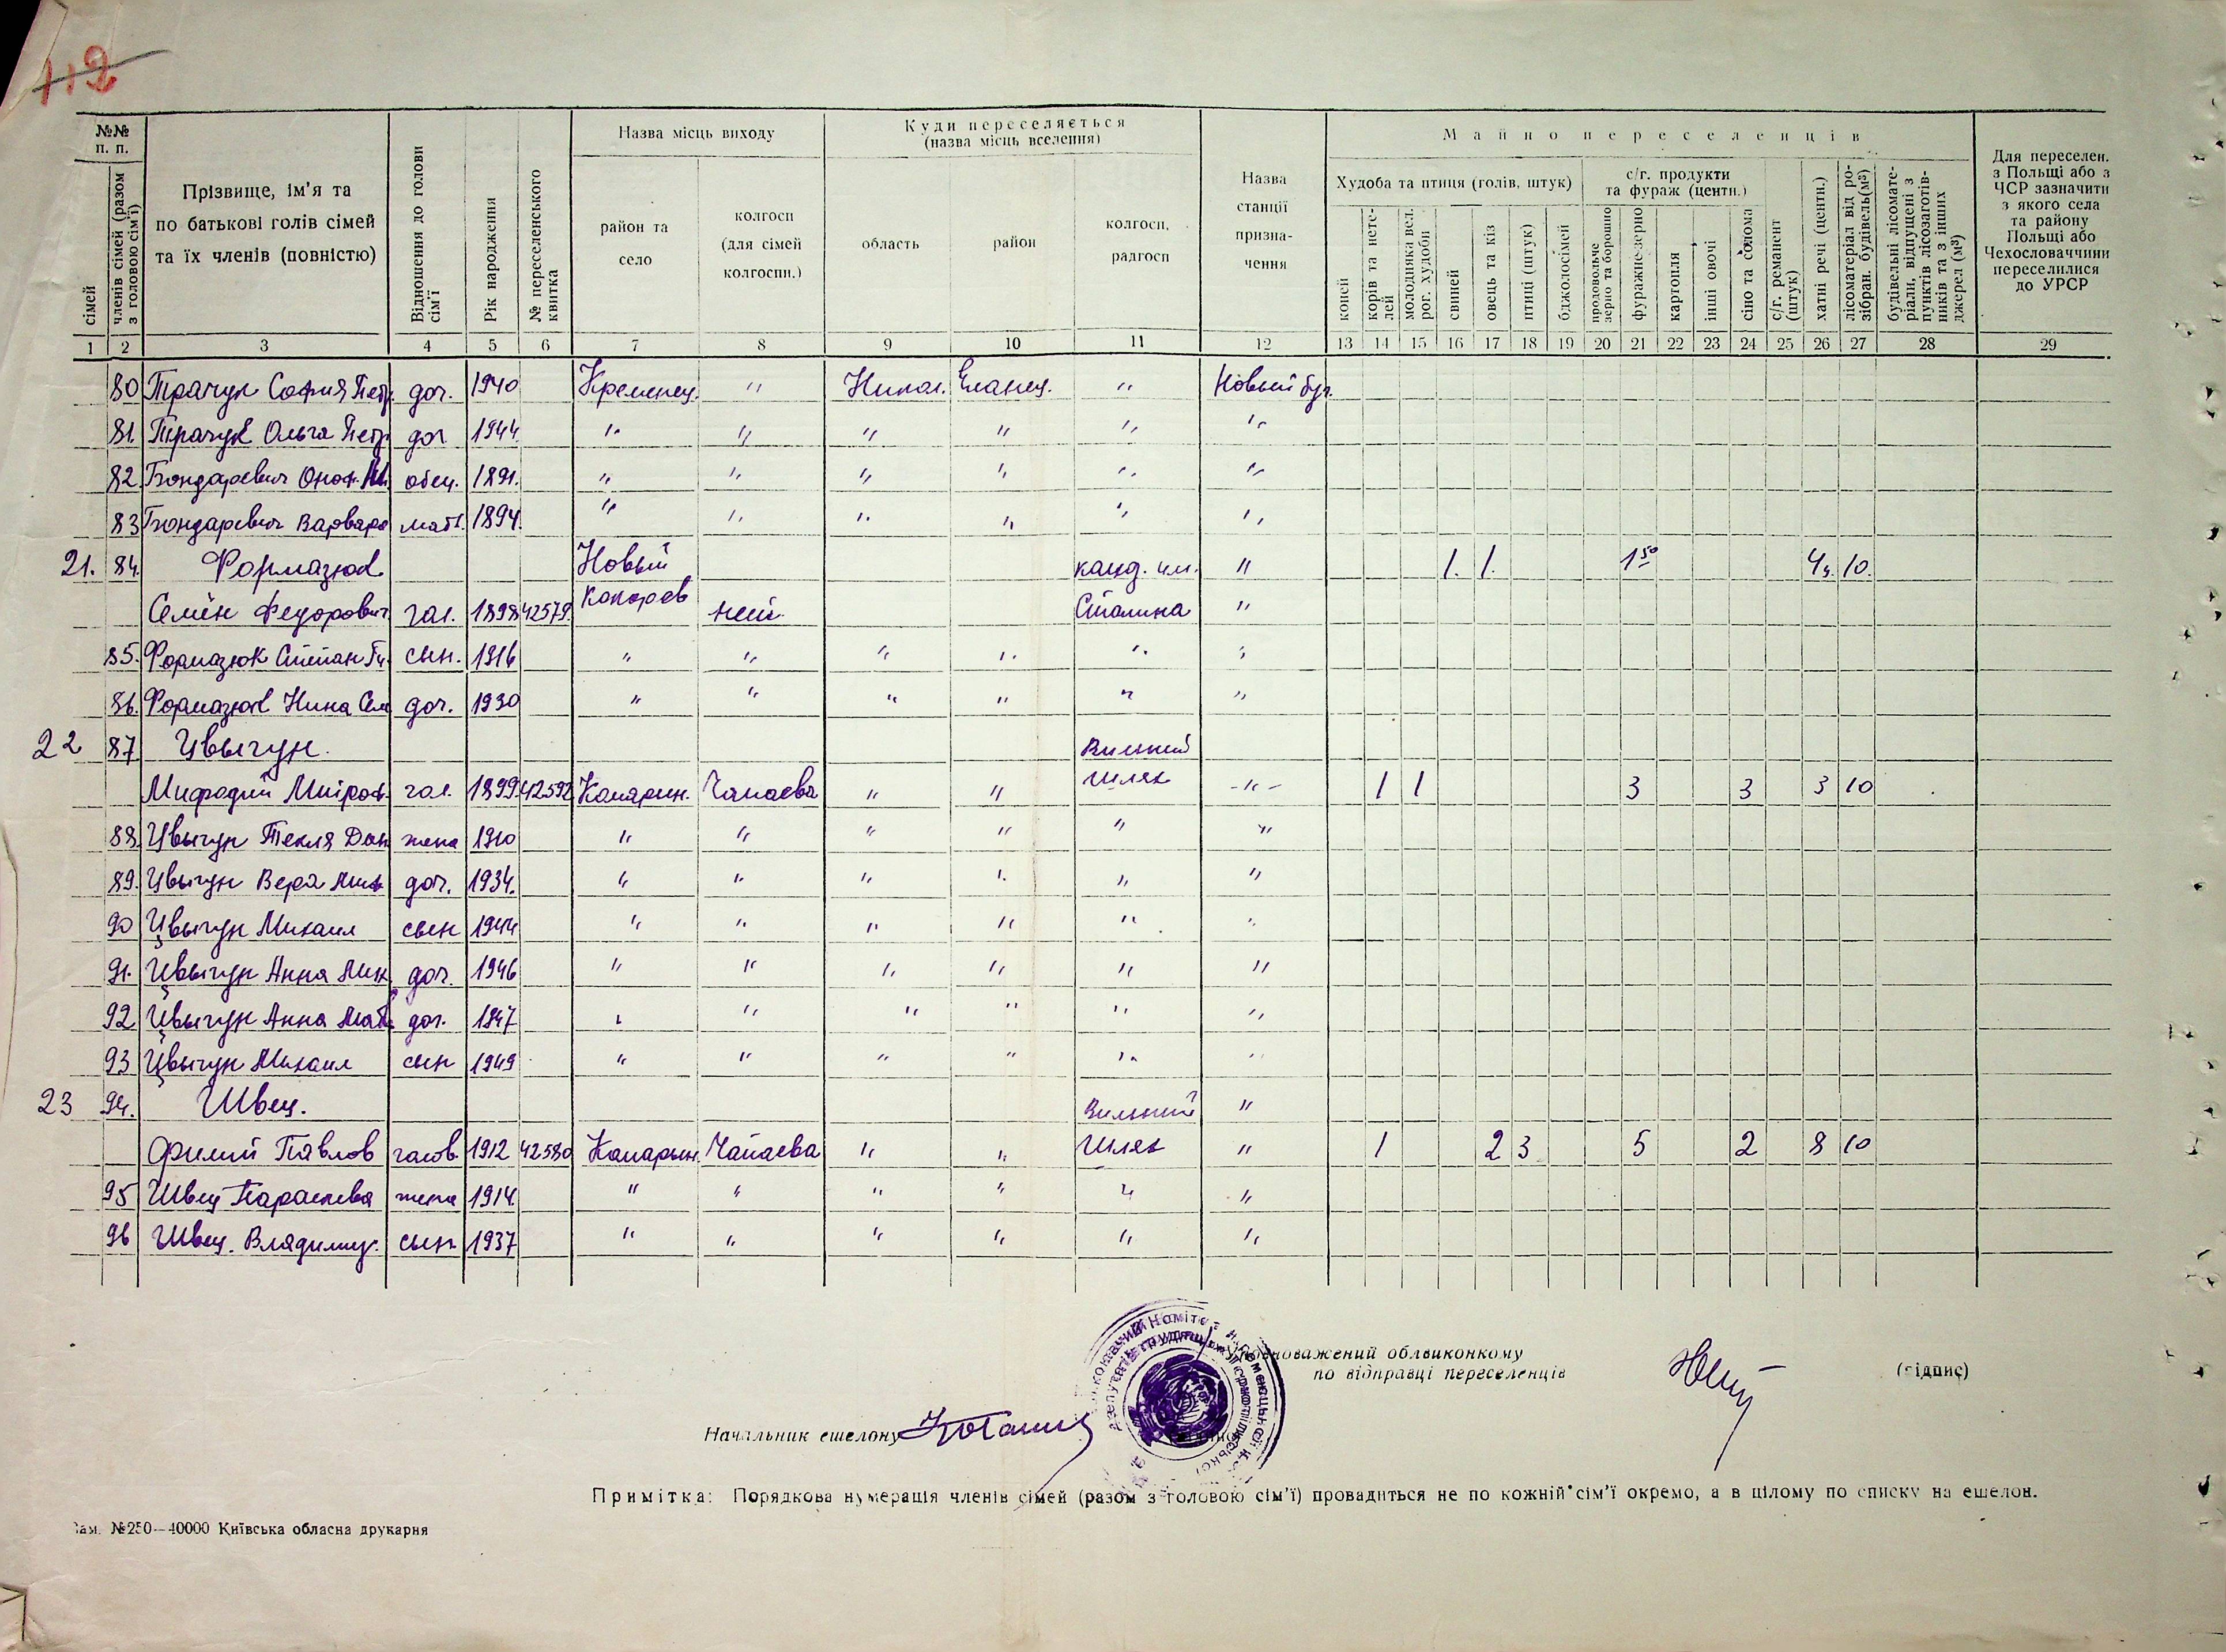 112
№№ п. п.
сімей
членів сімей (разом з головою сім'ї)
Прізвище, ім'я та по батькові голів сімей та їх членів (повністю)
Відношення до голови сім'ї
Рік народження
№ переселенського квитка
Назва місць виходу
район та село
колгосп (для сімей колгоспн.)
Куди переселяється (назва місць вселення)
область
район
колгосп, радгосп
Назва станції призначення
Майно переселенців
Худоба та птиця (голів, штук)
коней
корів та нетелей
молодняка вел. рог. худоби
свиней
овець та кіз
птиці (штук)
бджолосімей
с/г. продукти та фураж (центн.)
продовольче зерно та борошно
фуражне-зерно
картопля
інші овочі
сіно та солома
с/г. реманент (штук)
хатні речі (центн.)
лісоматеріал від розібран. будівель(м³)
будівельні лісоматеріали, відпущені з пунктів лісозаготівників та з інших джерел (м³)
Для переселен. з Польщі або з ЧСР зазначити з якого села та району Польщі або Чехословаччини переселилися до УРСР
1 2 3 4 5 6 7 8 9 10 11 12 13 14 15 16 17 18 19 20 21 22 23 24 25 26 27 28 29
80 Трачук София Петр. доч. 1940 Кременец. " Никол. Еланец. " Новый буг.
81. Трачук Ольга Петр доч 1944 " " " " " "
82. Бондаревич Оноф. М. отец. 1891. " " " " " "
83 Бондаревич Варвара мать. 1894. " " " " " "
21. 84. Формазюк Новый колд. им. " 1. 1. 1 50 4, 10.
Семён Федорович гол. 1898 42579. Кокорев неи. Сталина "
85. Формазюк Степан сын. 1916 " " " " " "
86. Формазюк Нина Сем доч. 1930 " " " " " "
22 87 Цвыгун. Вильний
Мифодий Митроф. гол. 1899 42592 Катарин. Чапаева " " шлях - " - 1 1 3 3 3 10
88. Цвыгун Текля Дан жена 1910 " " " " " "
89. Цвыгун Вера Миф. доч. 1934. " " " " " "
90 Цвыгун Михаил сын 1944 " " " " " "
91. Цвыгун Анна Мих доч. 1946 " " " " " "
92 Цвыгун Анна доч. 1947 " " " " " "
93 Цвыгун Михаил сын 1949 " " " " " "
23 94. Швец. Вильний "
Филип Павлов голов. 1912 42580 Катарын. Чапаева " " Шлях " 1 2 3 5 2 8 10
95 Швец Параскева жена 1914. " " " " " "
96 Швец. Владимир. сын 1937 " " " " " "
Уповноважений облвиконкому
по відправці переселенців
(підпис)
Начальник ешелону
Примітка: Порядкова нумерація членів сімей (разом з головою сім'ї) провадиться не по кожній сім'ї окремо, а в цілому по списку на ешелон.
Зам. №250—40000 Київська обласна друкарня